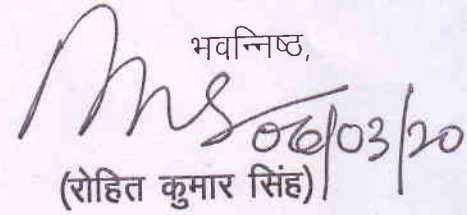 भवन्निष्ठ,
06/03/20
(रोहित कुमार सिंह)